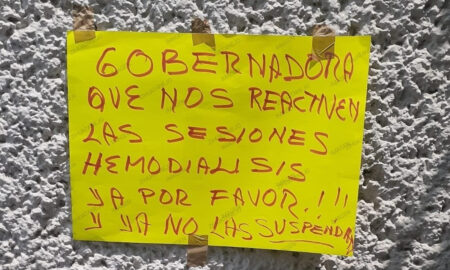 GOBERNADORA
QUE NOS REACTIVEN
LAS SESIONES
HEMODIALISIS
YA POR FAVOR.!!!
Y YA NO LAS SUSPENDAN